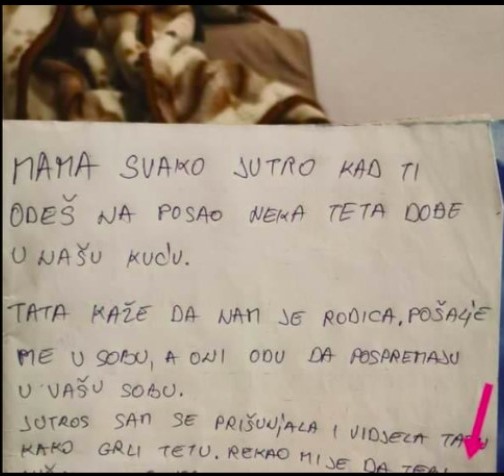 MAMA SVAKO JUTRO KAD TI
ODEŠ NA POSAO NEKA TETA DOĐE
U NAŠU KUĆU.
TATA KAŽE DA NAM JE RODICA, POŠALJE
ME U SOBU, A ONI ODU DA POSPREMAJU
U VAŠU SOBU.
JUTROS SAM SE PRIŠUNJALA I VIDJELA
KAKO GRLI TETU. REKAO MI JE DA